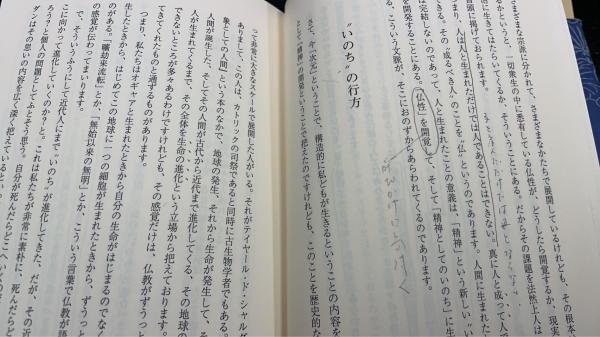 さまざまな流派に分かれて、さまざまなかたちで展開しているけれども、その根本
るかというと、「一切衆生の中に悉有している仏性が、どうしたら開覚するか、現実
活に生きてはたらいてくるか、そういうことにある。だからその課題を法然上人は
冒頭に掲げておられます。
つまり、人は人と生まれただけでは人であることはできない。真に人と成って人で
る。その“成るべき人”のことを“仏”というのであります。人間に生まれた
は完結しないのであって、人と生まれたことの意義は、「精神」という新しい“い
を開発することにある。「仏性」を開覚して、そして「精神としてのいのち」に生
こういう文脈が、そこにおのずからあらわれてくるのであります。
呼びかけに気付く
“いのち”の行方
さて、今「次元」ということで、構造的に私どもが生きるということの内容を
と「精神」の開発ということで捉えたのですけれども、このことを歴史的な
って非常に大きなスケールで展開した人がいる。それがテイヤール・ド・シャルダ
ありまして、この人は、カトリックの司祭であると同時に古生物学者でもある。
象としての人間』という本のなかで、地球の発生、それから生命が発生して、そ
人間が誕生した、そしてその人間が古代から近代まで進化してくる、その地球の
人が生まれてくるまで、その全体を生命の進化という立場から捉えております。
できないところが多々あるわけですけれども、その感覚だけは、仏教がずうっと
てきてくれたものと通ずるものがあります。
つまり、私たちはオギャアと生まれたときから自分の生命がはじまるのでなく
生したときから、はじめてこの地球に一つの細胞が生まれたときから、ずうっ
のがある。「曠劫来流転」とか、「無始以来の無明」とか、こういう言葉で仏教が語
の感覚が伝わってまいります。
で、そういうふうにして近代人にまで“いのち”が進化してきた。だが、その近
こに向かって進化していくのか。これは私たちが非常に素朴に、死んだらど
ろうナと個人の問題としてふと思う。自分が死んだらどこへいくの
ダンはその思いの内容を広く深く捉えているという